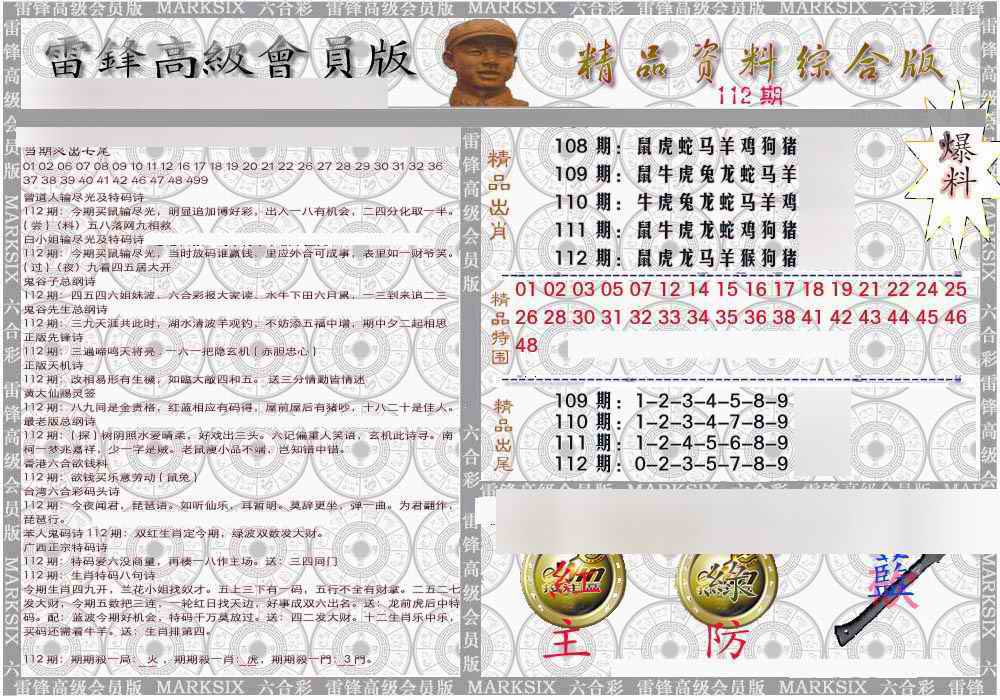 雷锋高级会员版 MARKSIX 六合彩 雷锋高级会员版 MARKSIX 六合彩 雷锋高级会员版 MARKSIX 六合彩 雷锋
雷鋒高級會員版
精品资料综合版
112 期
爆料
当期灵出七尾
01 02 06 07 08 09 10 11 12 16 17 18 19 20 21 22 26 27 28 29 30 31 32 36
37 38 39 40 41 42 46 47 48 499
曾道人输尽光及特码诗
112 期：今期买鼠输尽光，明显追加博好彩，出入一八有机会，二四分化取一半。
{ 尝 }（料）五八落网九相救
白小姐输尽光及特码诗
112 期：今期买鼠输尽光，当时放码谁赢钱，里应外合可成事，表里如一财爷笑。
{ 过 }（夜）九看四五居大开
鬼谷子总纲诗
112 期：四五四六姐妹波，六合彩报大家读，水牛下田六月累，一三到来追二三
鬼谷先生总纲诗
112 期：三九天涯共此时，湖水清波羊观钓，不妨添五福中增，期中夕二起相思
正版先锋诗
112 期：三遍啼鸣天将亮，一六一把隐玄机 { 赤胆忠心 }
正版天机诗
112 期：改相易形有生機，如臨大敵四和五。 送三分情勤皆情迷
黄大仙赐灵签
112 期：八九同是金贵格，红蓝相应有码得，屋前屋后有猪吵，十八二十是佳人。
最老版总纲诗
112 期：{ 探 } 树阴照水爱晴柔，好戏出三头。六记偏重人笑语，玄机此诗寻。南
柯一梦兆嘉祥，少一字是贼。老鼠瘦小品不端，岂知错中错。
香港六合欲钱料
112 期：欲钱买乐意劳动 { 鼠兔 }
台湾六合彩码头诗
112 期：今夜闻君，琵琶语。如听仙乐，耳暂明。莫辞更坐，弹一曲。为君翻作，
琵琶行。
苯人鬼码诗 112 期：双红生肖定今期，绿波双数发大财。
广西正宗特码诗
112 期：特码爱六没商量，再楼一八作主场。送：三四同门
112 期：生肖特码八句诗
今期生肖四九开，兰花小姐找奴才。五上三下有一码，五行不全有财拿。二五二七
发大财，今期五数把三连，一轮红日找天边，好事成双六出名。送：龙前虎后中特
码。配：蓝波今期好机会，特码千万莫放过。送：四二发大财。十二生肖乐中乐，
买码还需看牛羊。送：生肖排第四。
112 期：期期殺一局：火，期期殺一肖：虎，期期殺一門：3 門。
精品出肖
108 期：鼠虎蛇马羊鸡狗猪
109 期：鼠牛虎兔龙蛇马羊
110 期：牛虎兔龙蛇马羊鸡
111 期：鼠牛虎龙蛇鸡狗猪
112 期：鼠虎龙马羊猴狗猪
精品特围
01 02 03 05 07 12 14 15 16 17 18 19 21 22 24 25
26 28 30 31 32 33 34 35 36 38 41 42 43 44 45 46
48
精品出尾
109 期：1-2-3-4-5-8-9
110 期：1-2-3-4-7-8-9
111 期：1-2-4-5-6-8-9
112 期：0-2-3-5-7-8-9
紅
主
綠
防
藍
雷锋高级会员版 MARKSIX 六合彩 雷锋高级会员版 MARKSIX 六合彩 雷锋高级会员版 MARKSIX 六合彩 雷锋